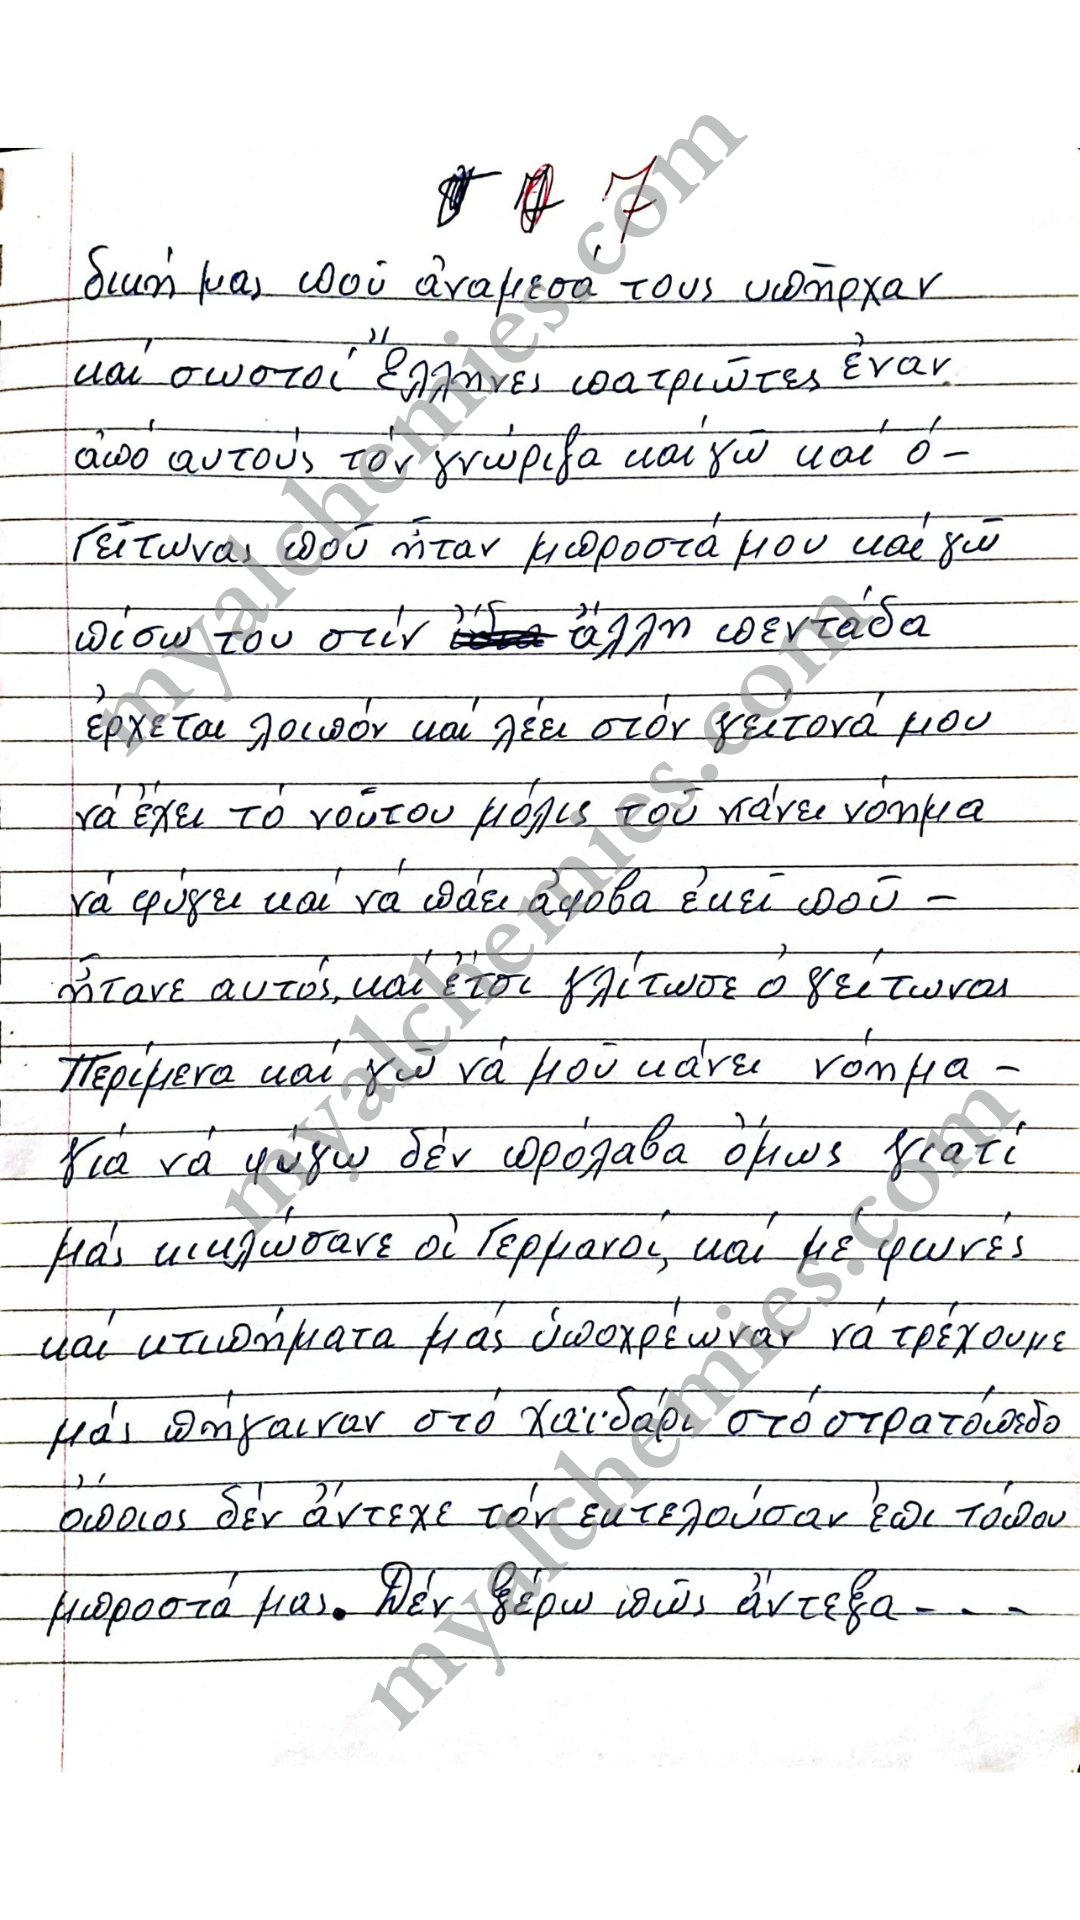 7
δική μας ποῦ ἀναμεσά τους υπῆρχαν
καί σωστοί Ἕλληνες πατριῶτες ἐναν
ἀπό αυτούς τόν γνώριζα καί γῶ καί ὁ -
Γεῖτωνας ποῦ ἦταν μπροστά μου καί γῶ
πίσω του στίν ἄλλη πεντάδα
ἐρχεται λοιπόν καί λέει στόν γείτονά μου
νά ἔχει τό νοῦτου μόλις τοῦ κάνει νόημα
νά φύγει καί νά πάει ἀφοβα ἐκεῖ ποῦ -
ἦτανε αυτός, καί ἔτσι γλίτωσε ὁ γείτωνας
Περίμενα καί γῶ νά μοῦ κάνει νόημα -
γιά νά φύγω δέν πρόλαβα ὅμως γιατί
μάς κικλώσανε οἱ Γερμανοί, καί μέ φωνές
καί κτιπήματα μάς ὑποχρέωναν νά τρέχουμε
μάς πήγαιναν στό Χαϊδάρι στό στρατόπεδο
ὅποιος δέν ἄντεχε τόν εκτελούσαν ἐπι τόπου
μπροστά μας. Δέν ξέρω πῶς ἄντεξα - - -
myalchemies.com
myalchemies.com
myalchemies.com